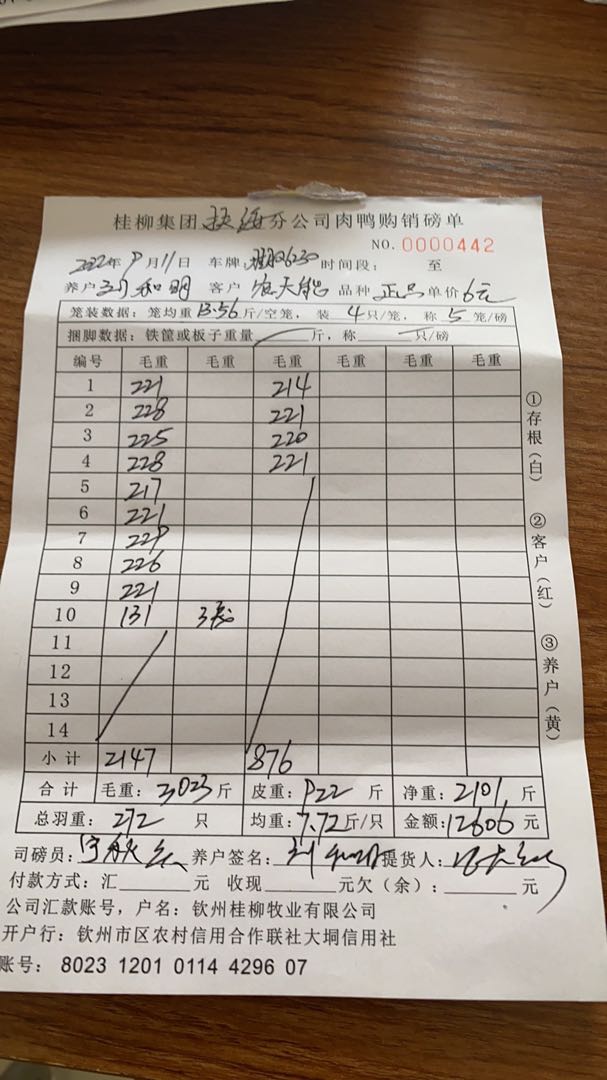 桂柳集团 分公司肉鸭购销磅单
NO. 0000442
2022年9月11日 车牌: 6230 时间段: 至
养户 刘和明 客户 品种 正品 单价 6元
笼装数据: 笼均重 13.56 斤/空笼, 装 4 只/笼, 称 5 笼/磅
捆脚数据: 铁筐或板子重量 斤, 称 只/磅
编号 毛重 毛重 毛重 毛重 毛重 毛重
1 221 214
2 228 221
3 225 220
4 228 221
5 217
6 221
7 229
8 226
9 221
10 131 3
11
12
13
14
小计 2147 876
合计 毛重: 3023 斤 皮重: 922 斤 净重: 2101 斤
总羽重: 272 只 均重: 7.72 斤/只 金额: 12606 元
司磅员: 养户签名: 提货人:
付款方式: 汇 元 收现 元欠（余）: 元
公司汇款账号, 户名: 钦州桂柳牧业有限公司
开户行: 钦州市区农村信用合作联社大垌信用社
账号: 8023 1201 0114 4296 07
①存根（白）
②客户（红）
③养户（黄）